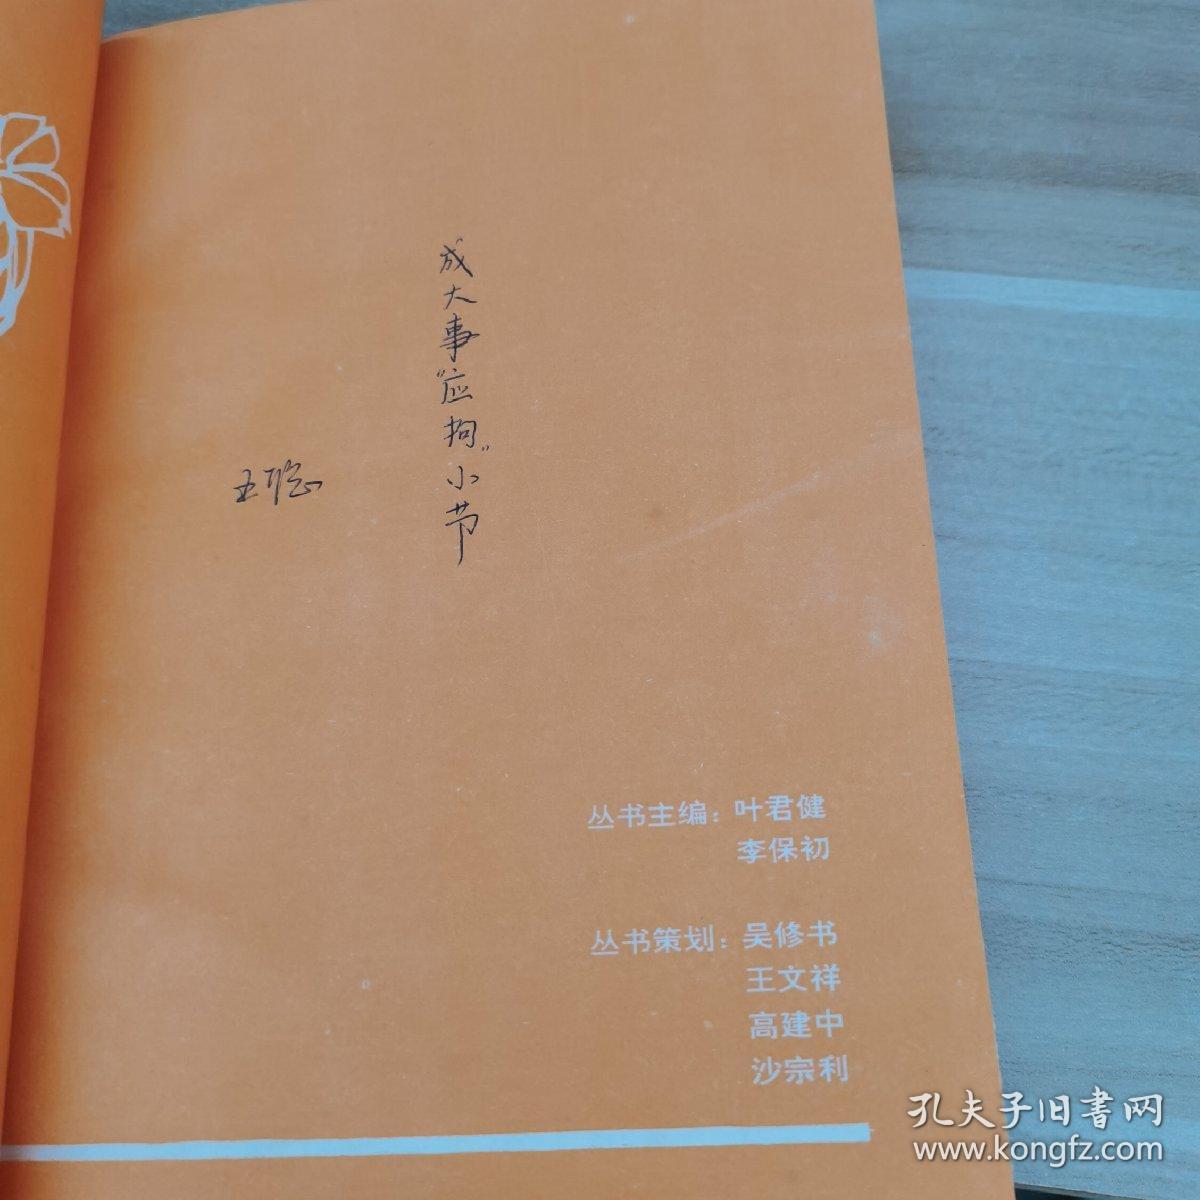 成大事“应拘”小节
王聪
丛书主编：叶君健
李保初
丛书策划：吴修书
王文祥
高建中
沙宗利
孔夫子旧书网
www.kongfz.com